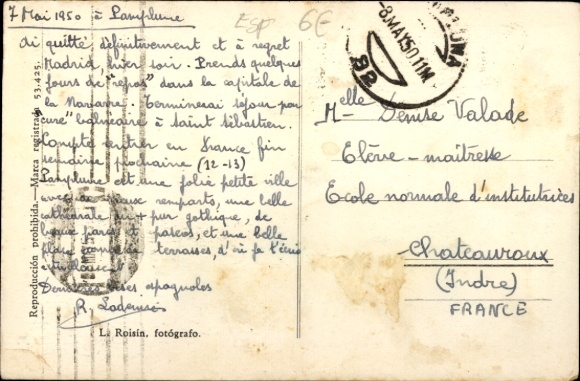 7 Mai 1950 à Pamplune
ESP 6€
Ai quitté définitivement et à regret
Madrid, hier soir. Prends quelques
jours de "repos" dans la capitale de
la Navarre. Terminerai séjour par
cure" balnéaire à Saint Sébastien.
Compte rentrer en France fin
semaine prochaine (12-13)
Pamplune est une jolie petite ville
avec de remparts, une belle
cathédrale du + pur gothique, de
beaux parcs et paseos, et une belle
place terrasses, d'où je t'écris
Dernières bises espagnoles
R.
L. Roisin, fotógrafo.
Reproducción prohibida.—Marca registrada 53.425.
8MAY50 11M
Melle Denise Valade
Elève-maîtresse
Ecole normale d'institutrices
Chateauroux
(Indre)
FRANCE